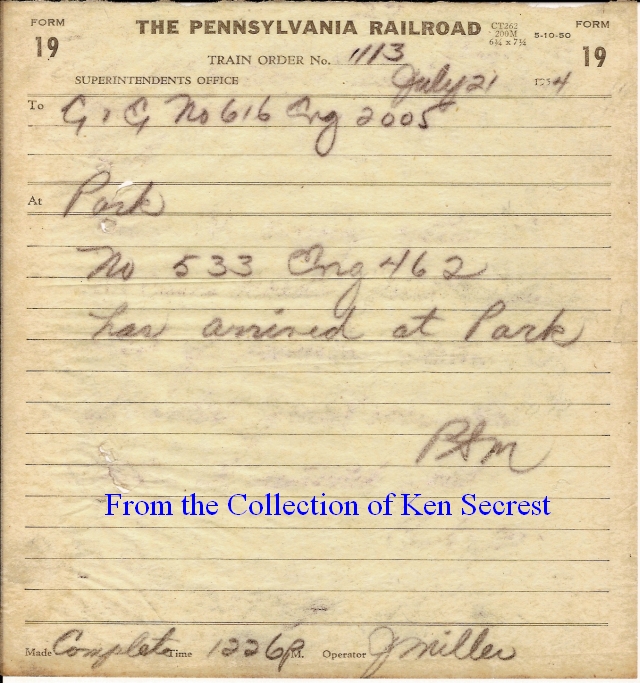 FORM 19
THE PENNSYLVANIA RAILROAD
CT262
200M
6¾ x 7½
5-10-50
FORM 19
TRAIN ORDER No. 1113
SUPERINTENDENTS OFFICE
July 21 1954
To C & C No 616 Eng 2005
At Park
No 533 Eng 462
has arrived at Park
From the Collection of Ken Secrest
Made Complete Time 1226 P M. Operator J Miller